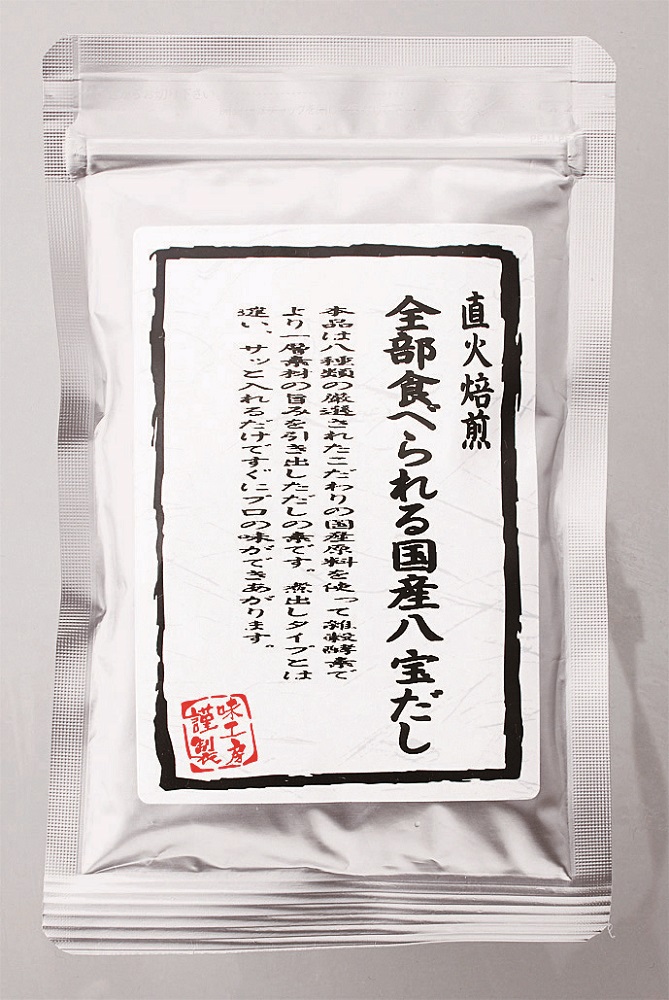 直火焙煎
全部食べられる国産八宝だし
本品は八種類の厳選されたこだわりの国産原料を使って雑穀酵素で
より一層素材の旨みを引き出しただしの素です。煮出しタイプとは
違い、サッと入れるだけですぐにプロの味ができあがります。
味工房
謹製